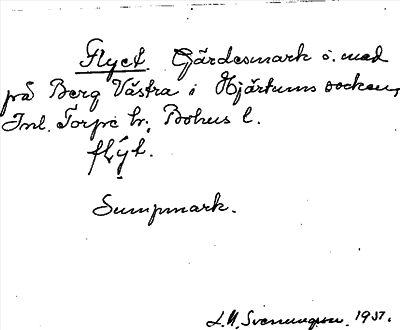 Flyet Gärdesmark o. mad
på Berg Västra i Hjärtums socken,
Inl. Torpe hr, Bohus l.
flỵt.
Sumpmark.
L.M. Svenungsson 1937.